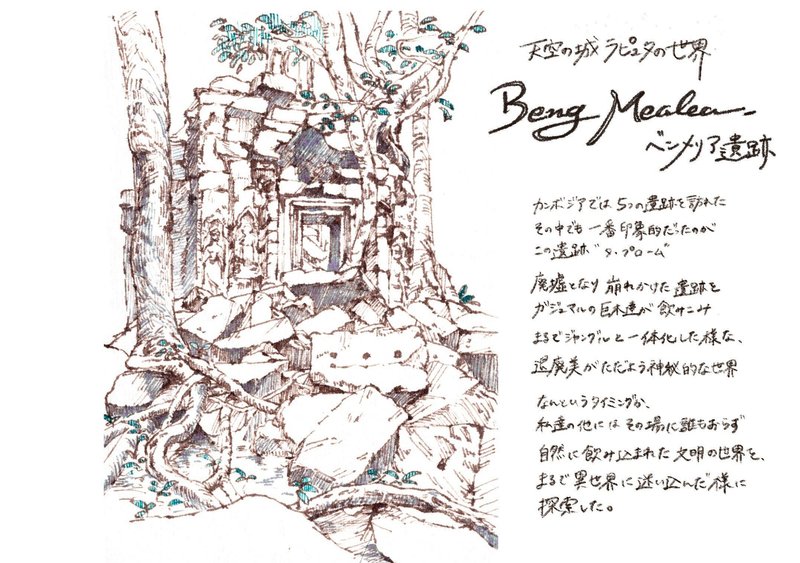 天空の城 ラピュタの世界
Beng Mealea
ベンメリア遺跡
カンボジアでは 5つの遺跡を訪れた
その中でも 一番印象的だったのが
この遺跡 "タ・プローム"
廃墟となり 崩れかけた 遺跡を
ガジュマルの巨木達が 飲みこみ
まるでジャングルと一体化した様な、
退廃美がただよう神秘的な世界
なんというタイミングか、
私達の他には その場に誰もおらず
自然に飲み込まれた 文明の世界を、
まるで異世界に迷い込んだ様に
探索した。